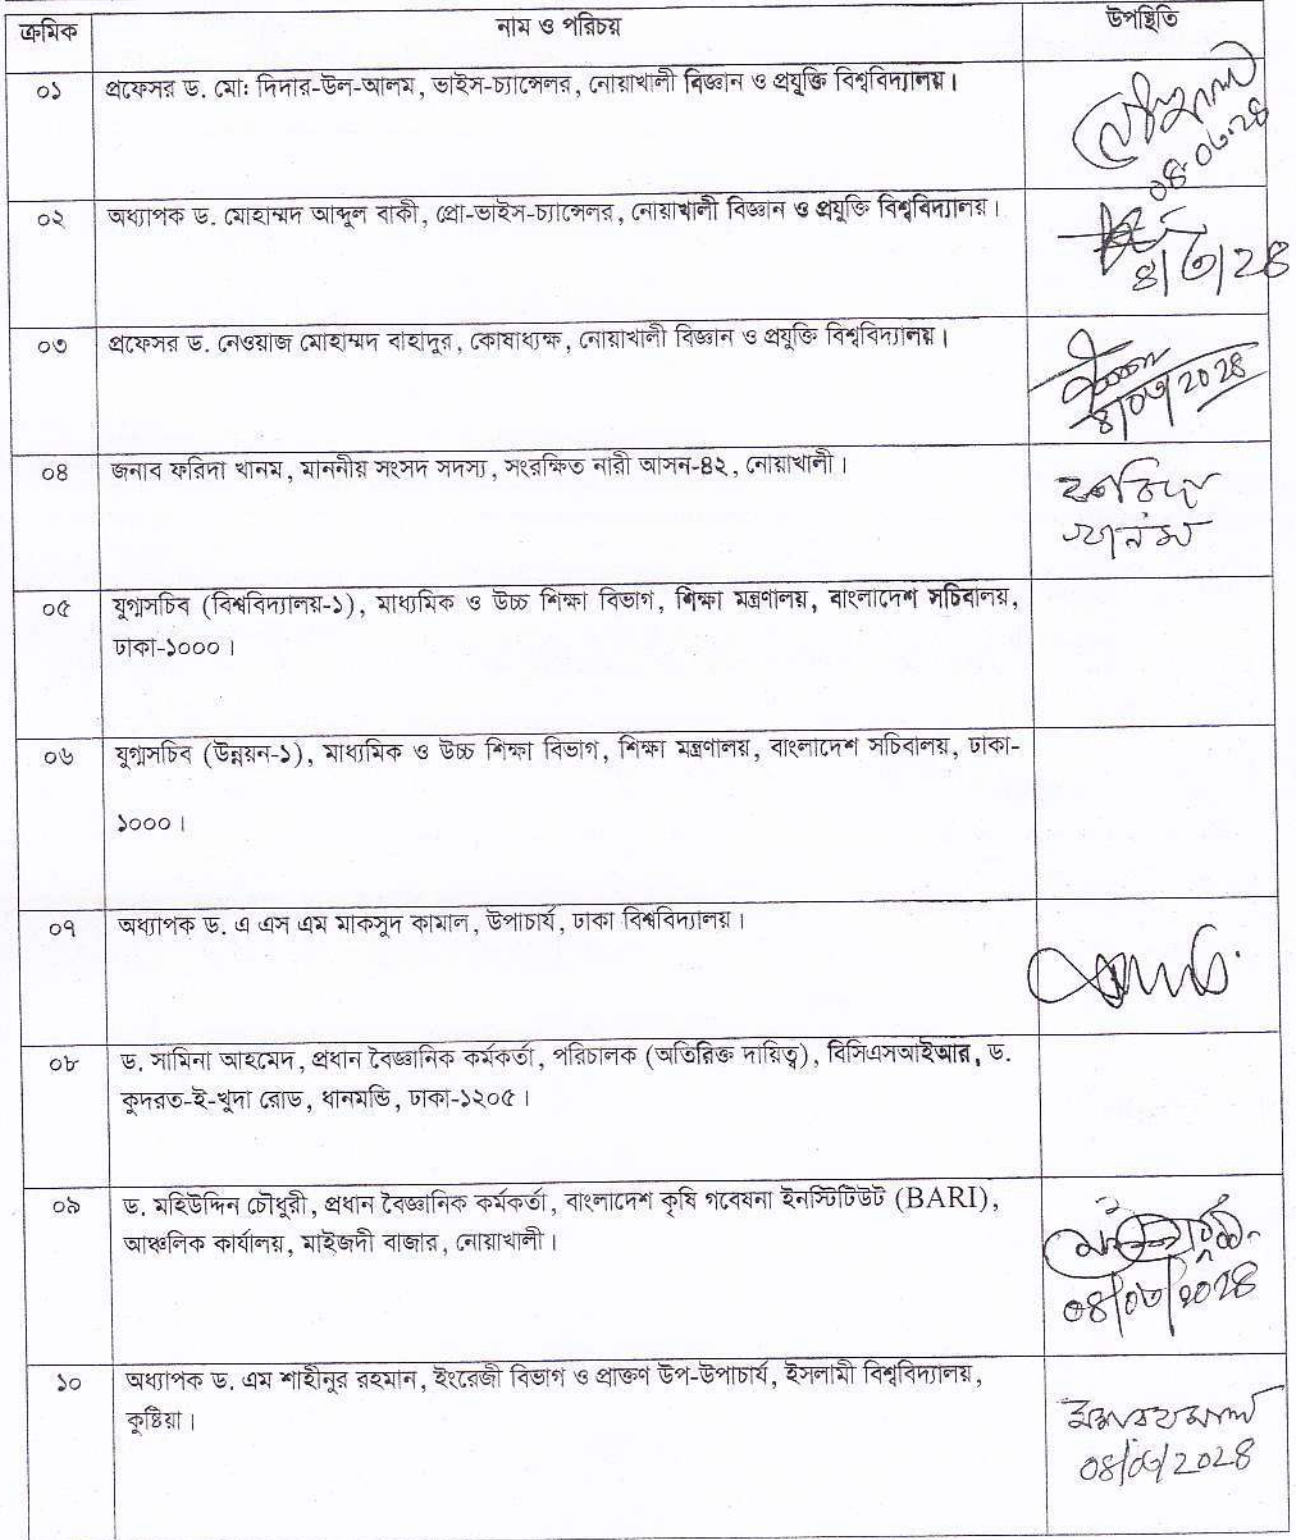 ক্রমিক নাম ও পরিচয় উপস্থিতি
০১ প্রফেসর ড. মো: দিদার-উল-আলম, ভাইস-চ্যান্সেলর, নোয়াখালী বিজ্ঞান ও প্রযুক্তি বিশ্ববিদ্যালয়।
০৪.০৩.২৪
০২ অধ্যাপক ড. মোহাম্মদ আব্দুল বাকী, প্রো-ভাইস-চ্যান্সেলর, নোয়াখালী বিজ্ঞান ও প্রযুক্তি বিশ্ববিদ্যালয়।
৪/৩/২৪
০৩ প্রফেসর ড. নেওয়াজ মোহাম্মদ বাহাদুর, কোষাধ্যক্ষ, নোয়াখালী বিজ্ঞান ও প্রযুক্তি বিশ্ববিদ্যালয়।
৪/০৩/২০২৪
০৪ জনাব ফরিদা খানম, মাননীয় সংসদ সদস্য, সংরক্ষিত নারী আসন-৪২, নোয়াখালী।
ফরিদা
খানম
০৫ যুগ্মসচিব (বিশ্ববিদ্যালয়-১), মাধ্যমিক ও উচ্চ শিক্ষা বিভাগ, শিক্ষা মন্ত্রণালয়, বাংলাদেশ সচিবালয়,
ঢাকা-১০০০।
০৬ যুগ্মসচিব (উন্নয়ন-১), মাধ্যমিক ও উচ্চ শিক্ষা বিভাগ, শিক্ষা মন্ত্রণালয়, বাংলাদেশ সচিবালয়, ঢাকা-
১০০০।
০৭ অধ্যাপক ড. এ এস এম মাকসুদ কামাল, উপাচার্য, ঢাকা বিশ্ববিদ্যালয়।
০৮ ড. সামিনা আহমেদ, প্রধান বৈজ্ঞানিক কর্মকর্তা, পরিচালক (অতিরিক্ত দায়িত্ব), বিসিএসআইআর, ড.
কুদরত-ই-খুদা রোড, ধানমন্ডি, ঢাকা-১২০৫।
০৯ ড. মহিউদ্দিন চৌধুরী, প্রধান বৈজ্ঞানিক কর্মকর্তা, বাংলাদেশ কৃষি গবেষনা ইনস্টিটিউট (BARI),
আঞ্চলিক কার্যালয়, মাইজদী বাজার, নোয়াখালী।
০৪/০৩/২০২৪
১০ অধ্যাপক ড. এম শাহীনুর রহমান, ইংরেজী বিভাগ ও প্রাক্তণ উপ-উপাচার্য, ইসলামী বিশ্ববিদ্যালয়,
কুষ্টিয়া।
০৪/০৩/২০২৪